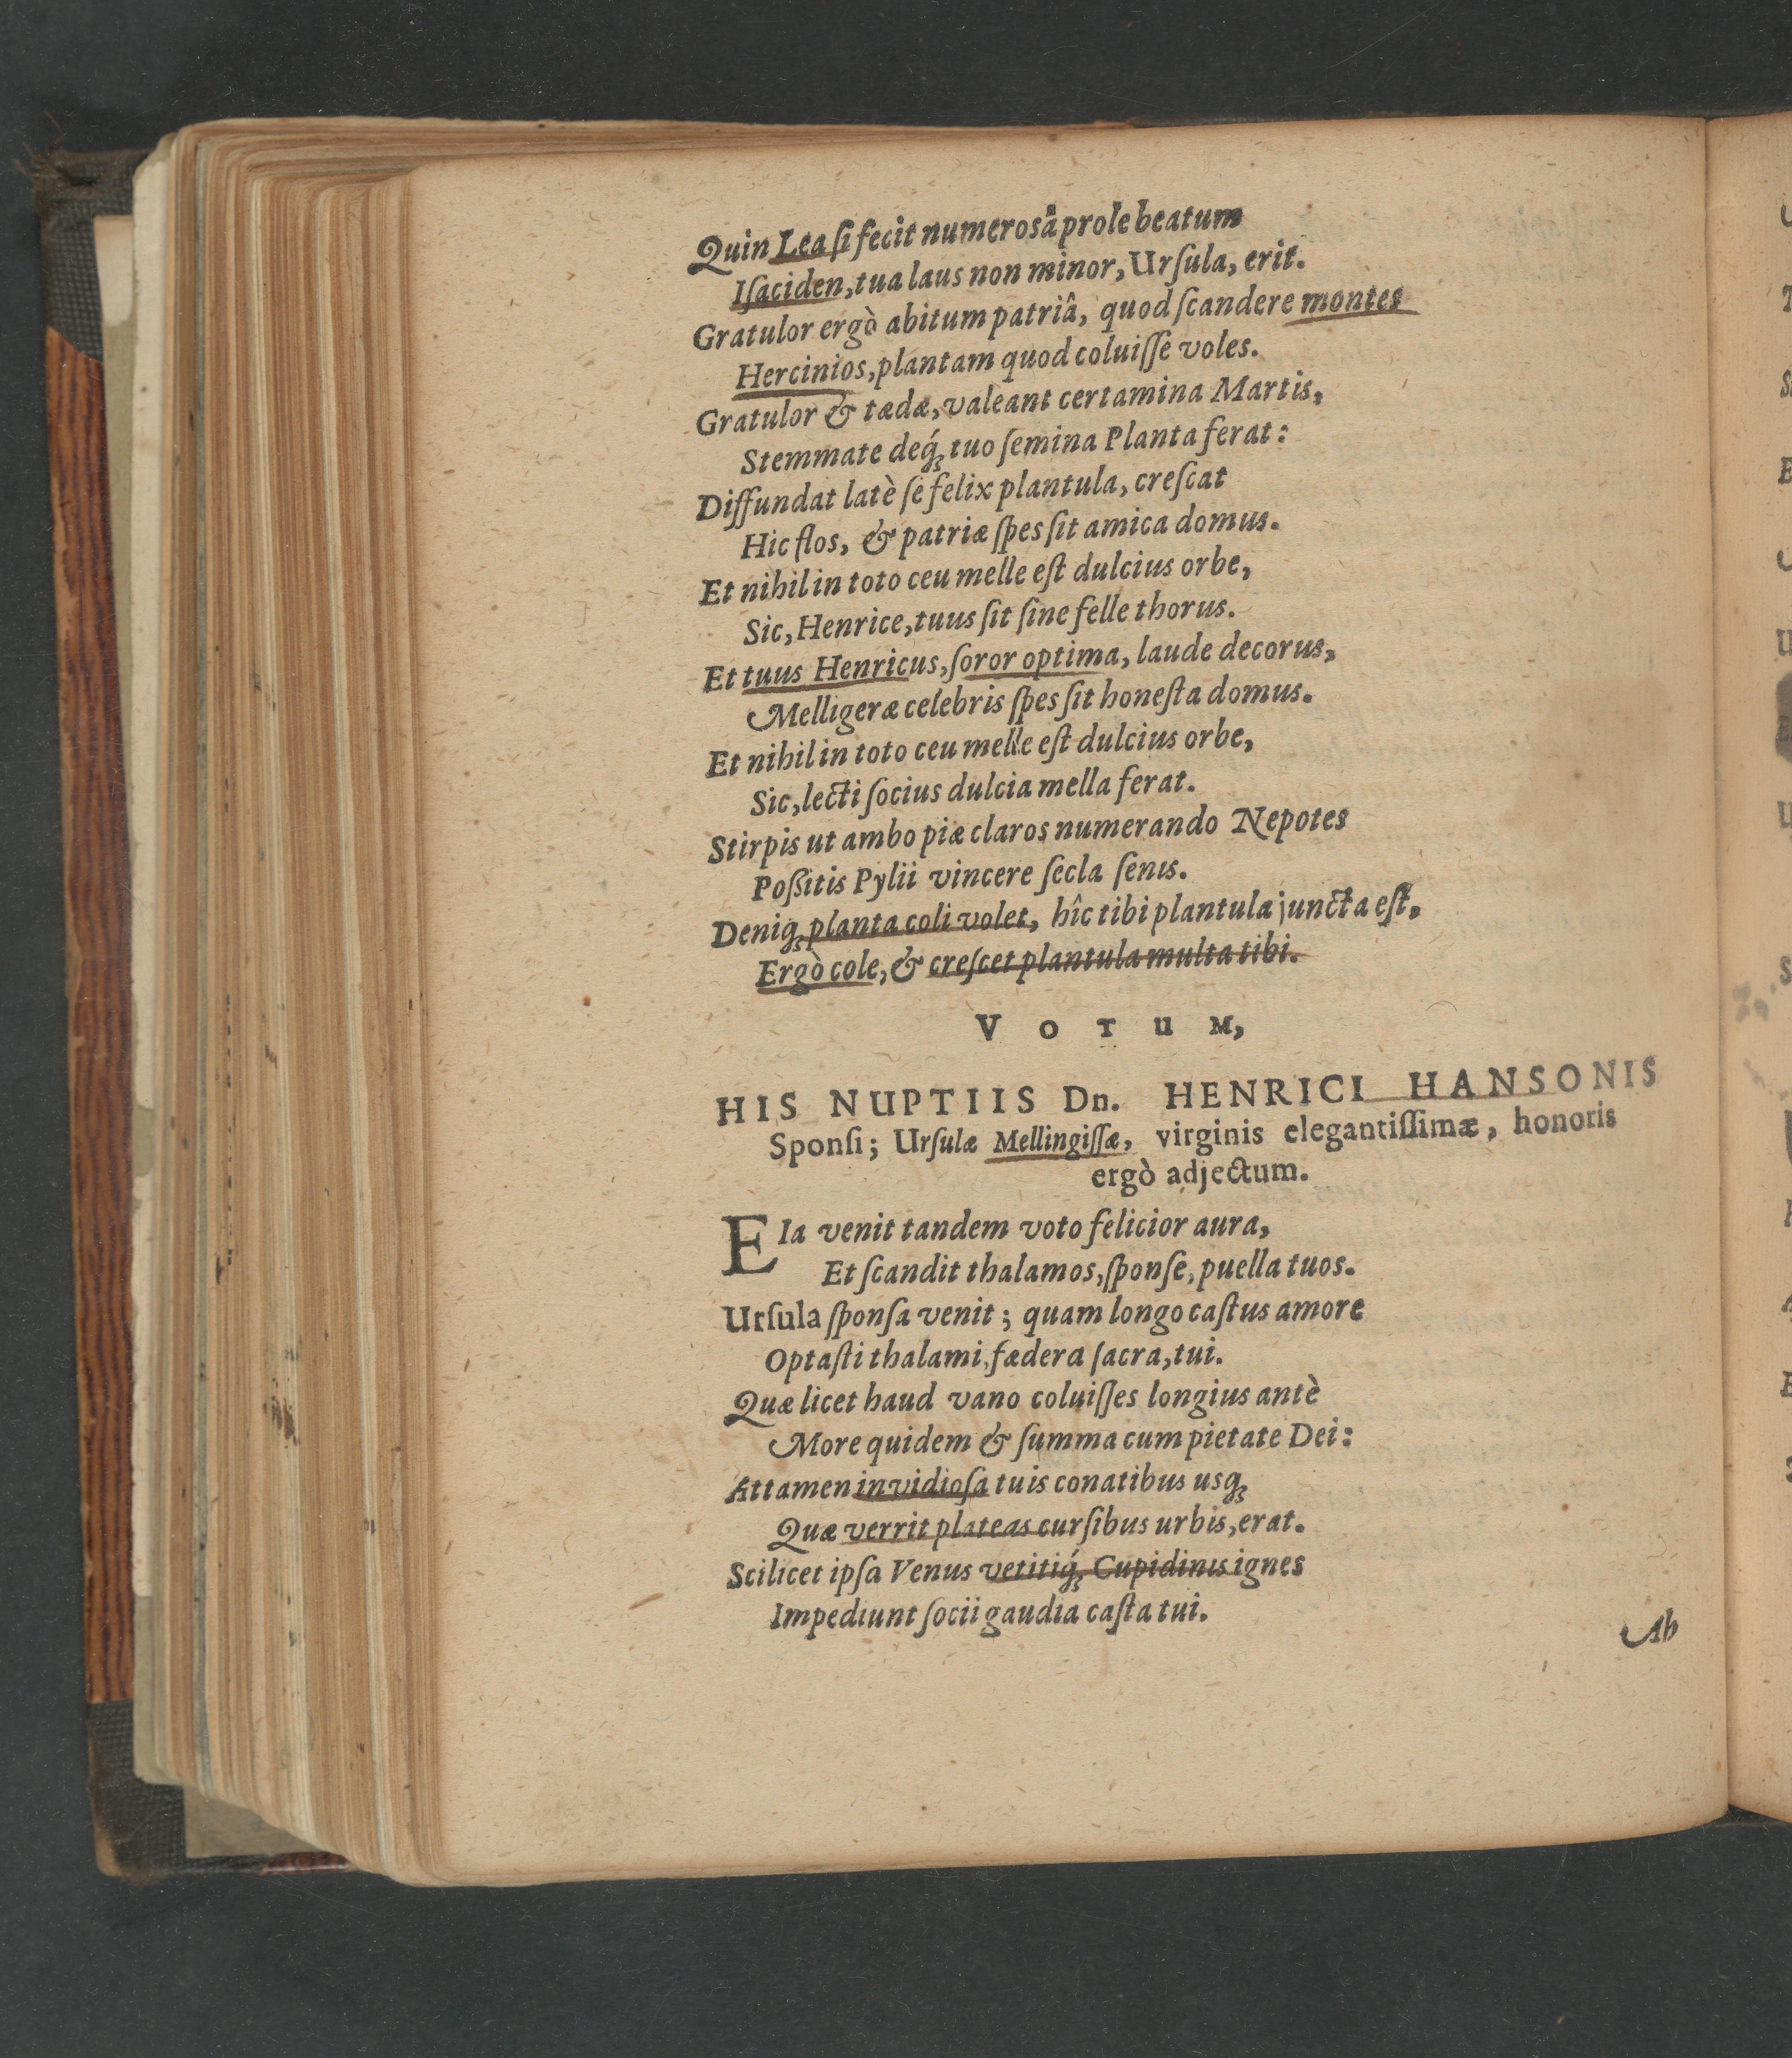 Quin Lea ſi fecit numerosâ prole beatum
Iſaciden, tua laus non minor, Urſula, erit.
Gratulor ergò abitum patriâ, quod ſcandere montes
Hercinios, plantam quod coluiſſe voles.
Gratulor & tædæ, valeant certamina Martis,
Stemmate deq́ꝫ tuo ſemina Planta ferat:
Diffundat latè ſe felix plantula, creſcat
Hic flos, & patriæ ſpes ſit amica domus.
Et nihil in toto ceu melle eſt dulcius orbe,
Sic, Henrice, tuus ſit ſine felle thorus.
Et tuus Henricus, ſoror optima, laude decorus,
Melligeræ celebris ſpes ſit honeſta domus.
Et nihil in toto ceu melle eſt dulcius orbe,
Sic, lecti ſocius dulcia mella ferat.
Stirpis ut ambo piæ claros numerando Nepotes
Poßitis Pylii vincere ſecla ſenis.
Deniqꝫ planta coli volet, hîc tibi plantula juncta eſt,
Ergò cole, & creſcet plantula multa tibi.
VOTUM,
HIS NUPTIIS Dn. HENRICI HANSONIS
Sponſi; Urſulæ Mellingiſſæ, virginis elegantiſſimæ, honoris
ergò adjectum.
EIa venit tandem voto felicior aura,
Et ſcandit thalamos, ſponſe, puella tuos.
Urſula ſponſa venit; quam longo caſtus amore
Optaſti thalami, fædera ſacra, tui.
Quæ licet haud vano coluiſſes longius antè
More quidem & ſumma cum pietate Dei:
Attamen invidioſa tuis conatibus usqꝫ
Quæ verrit plateas curſibus urbis, erat.
Scilicet ipſa Venus vetitiq́ꝫ Cupidinis ignes
Impediunt ſocii gaudia caſta tui.
Ab